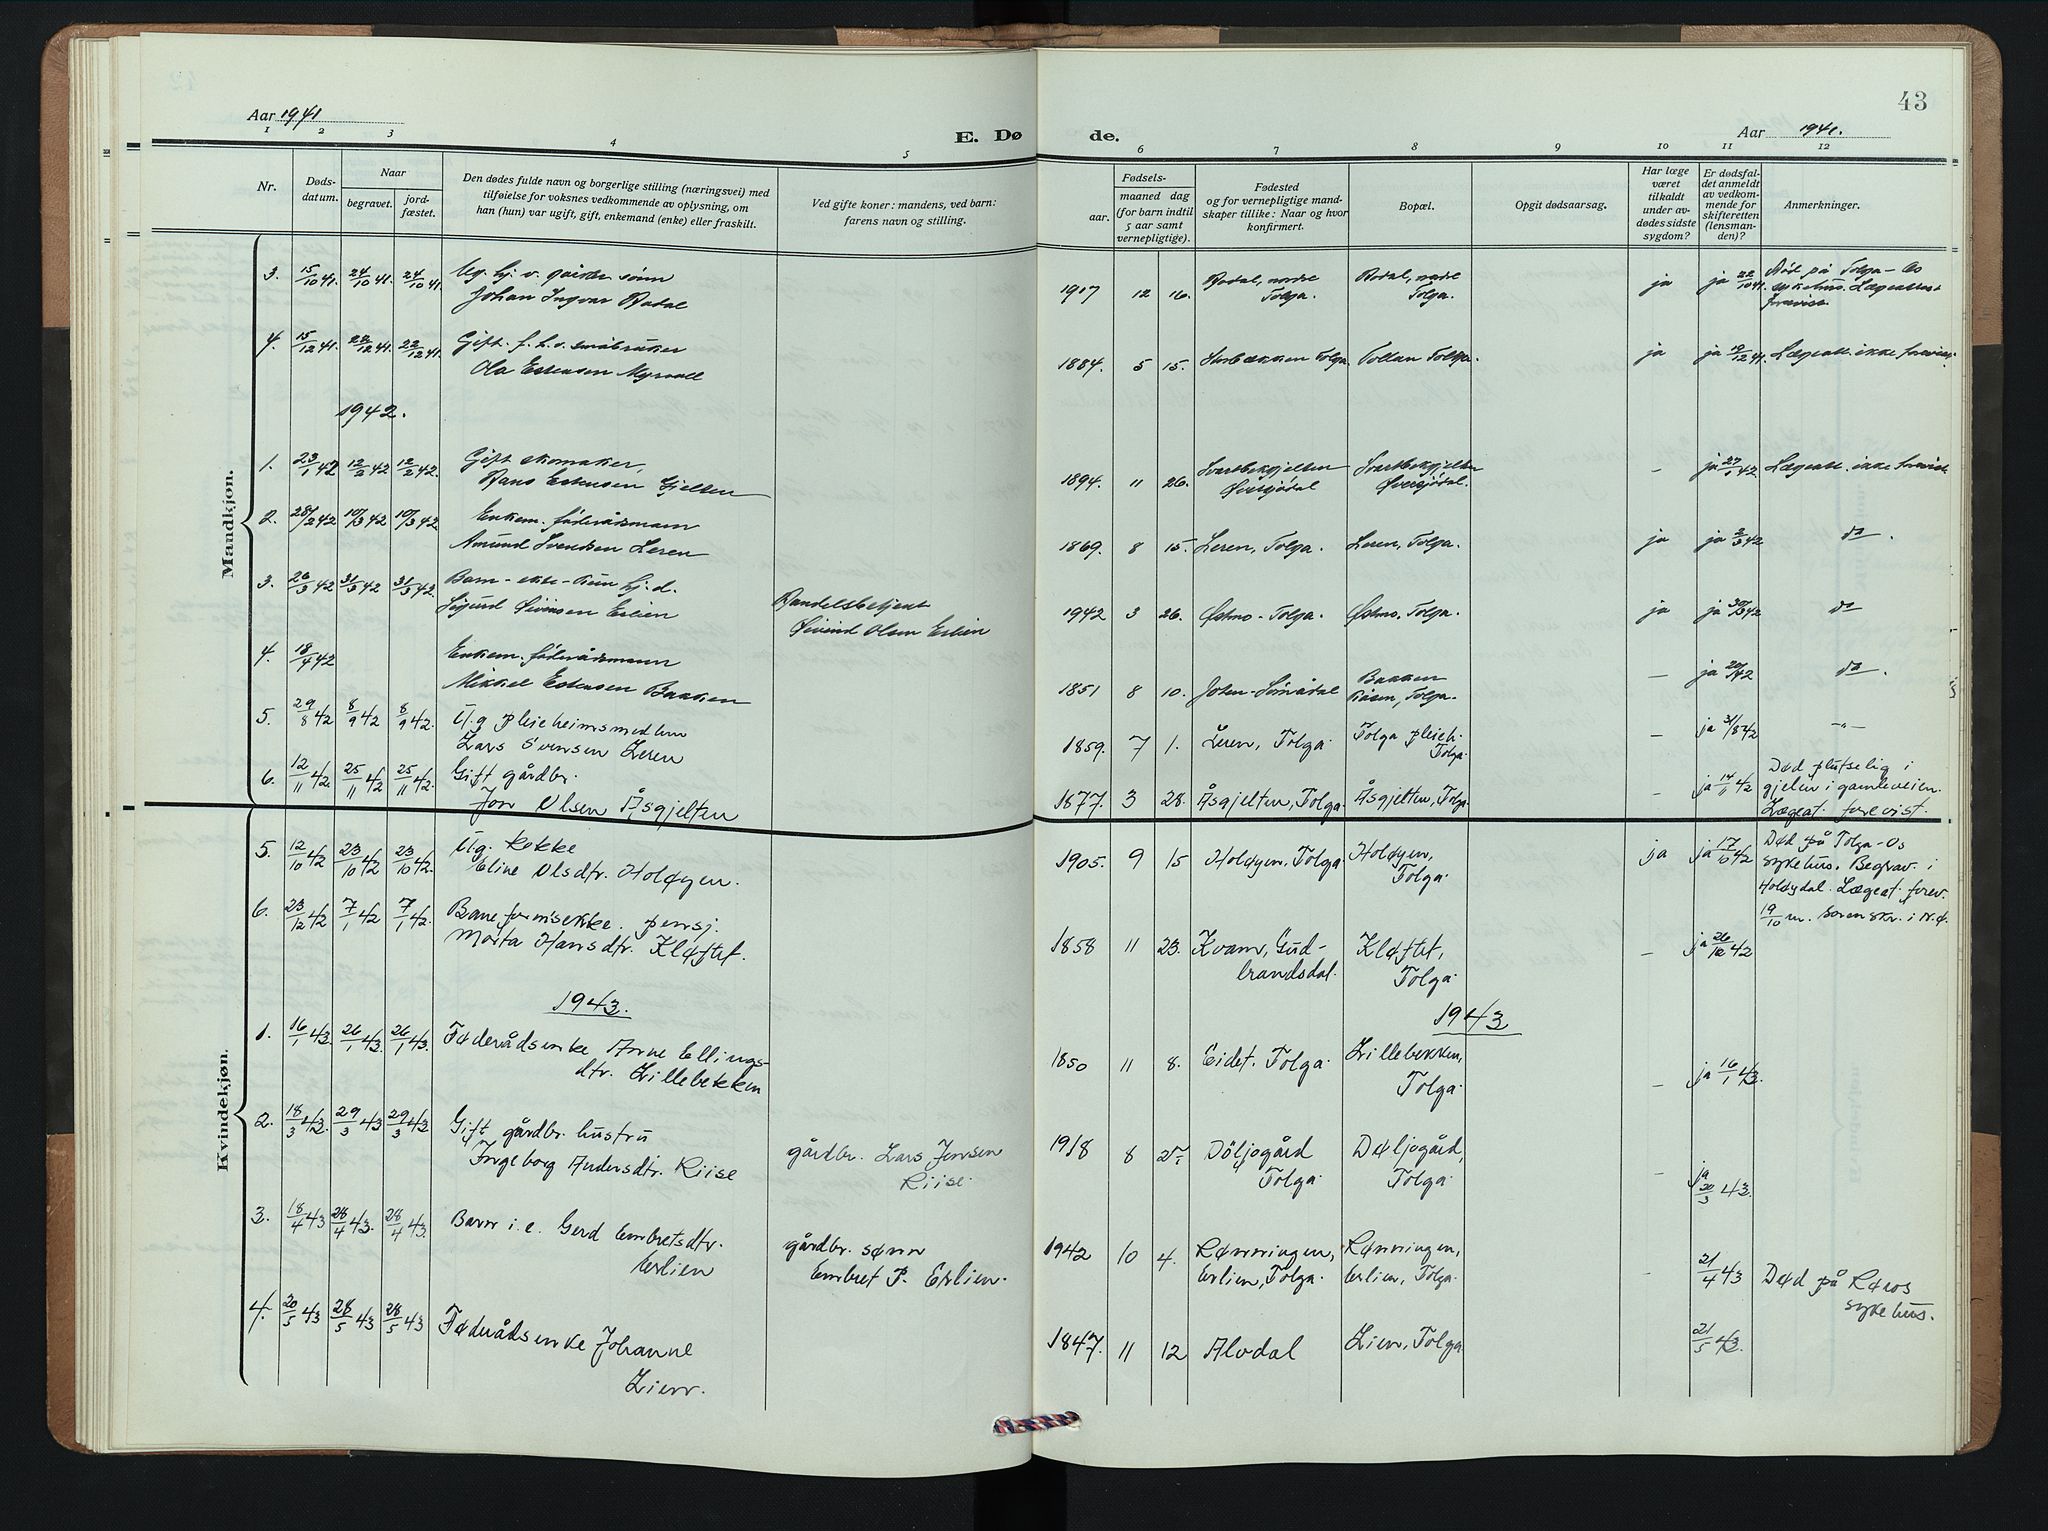 43
Aar 1941
E. Dø de.
Aar 1941.
1 2 3 4 5 6 7 8 9 10 11 12
Nr.
Dødsdatum.
Naar
begravet.
jordfæstet.
Den dødes fulde navn og borgerlige stilling (næringsvei) med
tilføielse for voksnes vedkommende av oplysning, om
han (hun) var ugift, gift, enkemand (enke) eller fraskilt.
Ved gifte koner: mandens, ved barn:
farens navn og stilling.
Fødsels-
aar.
maaned dag
(for barn indtil
5 aar samt
vernepligtige).
Fødested
og for vernepligtige mandskaper tillike: Naar og hvor
konfirmert.
Bopæl.
Opgit dødsaarsag.
Har læge
været
tilkaldt
under avdødes sidste
sygdom?
Er dødsfaldet anmeldt
av vedkommende for
skifteretten
(lensmanden)?
Anmerkninger.
Mandkjøn.
3. 15/10 41. 24/10 41. 24/10 41. Ug. hj. v. sønn
Johan Ingvar Bodal
1917 12 16. Bodal, nordre Tolga. Bodal, nordre Tolga. ja ja 22/10 41. Død på Tolga-Os sykehus. Lægeattest forevist.
4. 15/12 41. 22/12 41. 22/12 41. Gift. f. h. v. småbruker
Ola Estensen Myrvoll
1884. 5 15. Storbækken Tolga. Tollan Tolga. ja ja 19/12 41. Lægeatt. ikke forevist.
1942.
1. 23/1 42 12/2 42 12/2 42. Gift skomaker,
Hans Estensen Gjelten
1894. 11 26. Svartbekgjelten Øversjødal Svartbekgjelten Øversjødal. – ja 27/1 42 Lægeatt. ikke forevist
2. 28/2 42 10/3 42 10/3 42 Enkem. føderådsmann
Amund Svendsen Leren
1869. 8 15. Leren, Tolga. Leren, Tolga. ja ja 2/3 42 do.
3. 26/3 42 31/3 42 31/3 42. Barn - ekte - kun hj. d.
Sigurd Øivinsen Erlien
Handelsbetjent
Øivind Olsen Erlien
1942 3 26. Østmo - Tolga. Østmo, Tolga. ja ja 30/3 42 do
4. 18/4 42 Enkem. føderådsmann
Mikkel Estensen Bakken
1851 8 10. Bakken Tolga. – ja 20/4 42 do.
5. 29/8 42 8/9 42 8/9 42. Ug pleieheimsmedlem
Lars Svensen Leren
1859. 7 1. Leren, Tolga. Tolga pleieh. Tolga. – ja 31/8 42 –"–
6. 12/11 42 25/11 42 25/11 42 Gift gårdbr.
Jon Olsen Åsgjelten
1877. 3 28. Åsgjelten, Tolga. Åsgjelten, Tolga. – ja 14/11 42 Død plutselig i
gjelen i gamleveien.
Lægeat. forevist.
Kvindekjøn.
5. 12/10 42 23/10 42 23/10 42 Ug. kokke
Eline Olsdtr. Holøyen.
1905. 9 15 Holøyen, Tolga. Holøyen, Tolga. ja ja 17/10 42 Død på Tolga-Os
sykehus. Begrav. i
Holøydal. Lægeat. forev.
19/10 m. sorenskr. i N.Ø.
6. 23/12 42 7/1 42 7/1 42. Baneform.enke. pensj.
Marta Hansdtr. Kløftet.
1858 11 23. Kvam, Gudbrandsdal. Kløftet, Tolga. – ja 26/12 42
1943.
1943
1. 16/1 43. 26/1 43. 26/1 43. Føderådsenke Anne Ellingsdtr. Lillebekken
1850 11 8. Eidet. Tolga. Lillebekken, Tolga. – ja 16/1 43.
2. 18/3 43. 29/3 43 29/3 43 Gift gårdbr. hustru
Ingeborg Andersdtr. Riise
gårdbr. Lars Jonsen
Riise.
1918 8 25. Døljogård Tolga. Døljogård, Tolga. – ja 20/3 43.
3. 18/4 43 28/4 43. 28/4 43. Barn i.e. Gerd Embretsdtr.
Erlien
gårdbr. sønn
Embret P. Erlien.
1942 10 4. Rønningen, Erlien, Tolga. Rønningen, Erlien, Tolga. – 21/4 43 Død på Røros
sykehus.
4. 20/5 43 28/5 43 28/5 43 Føderådsenke Johanne
Lien.
1847. 11 12 Alvdal Lien, Tolga 21/5 43.